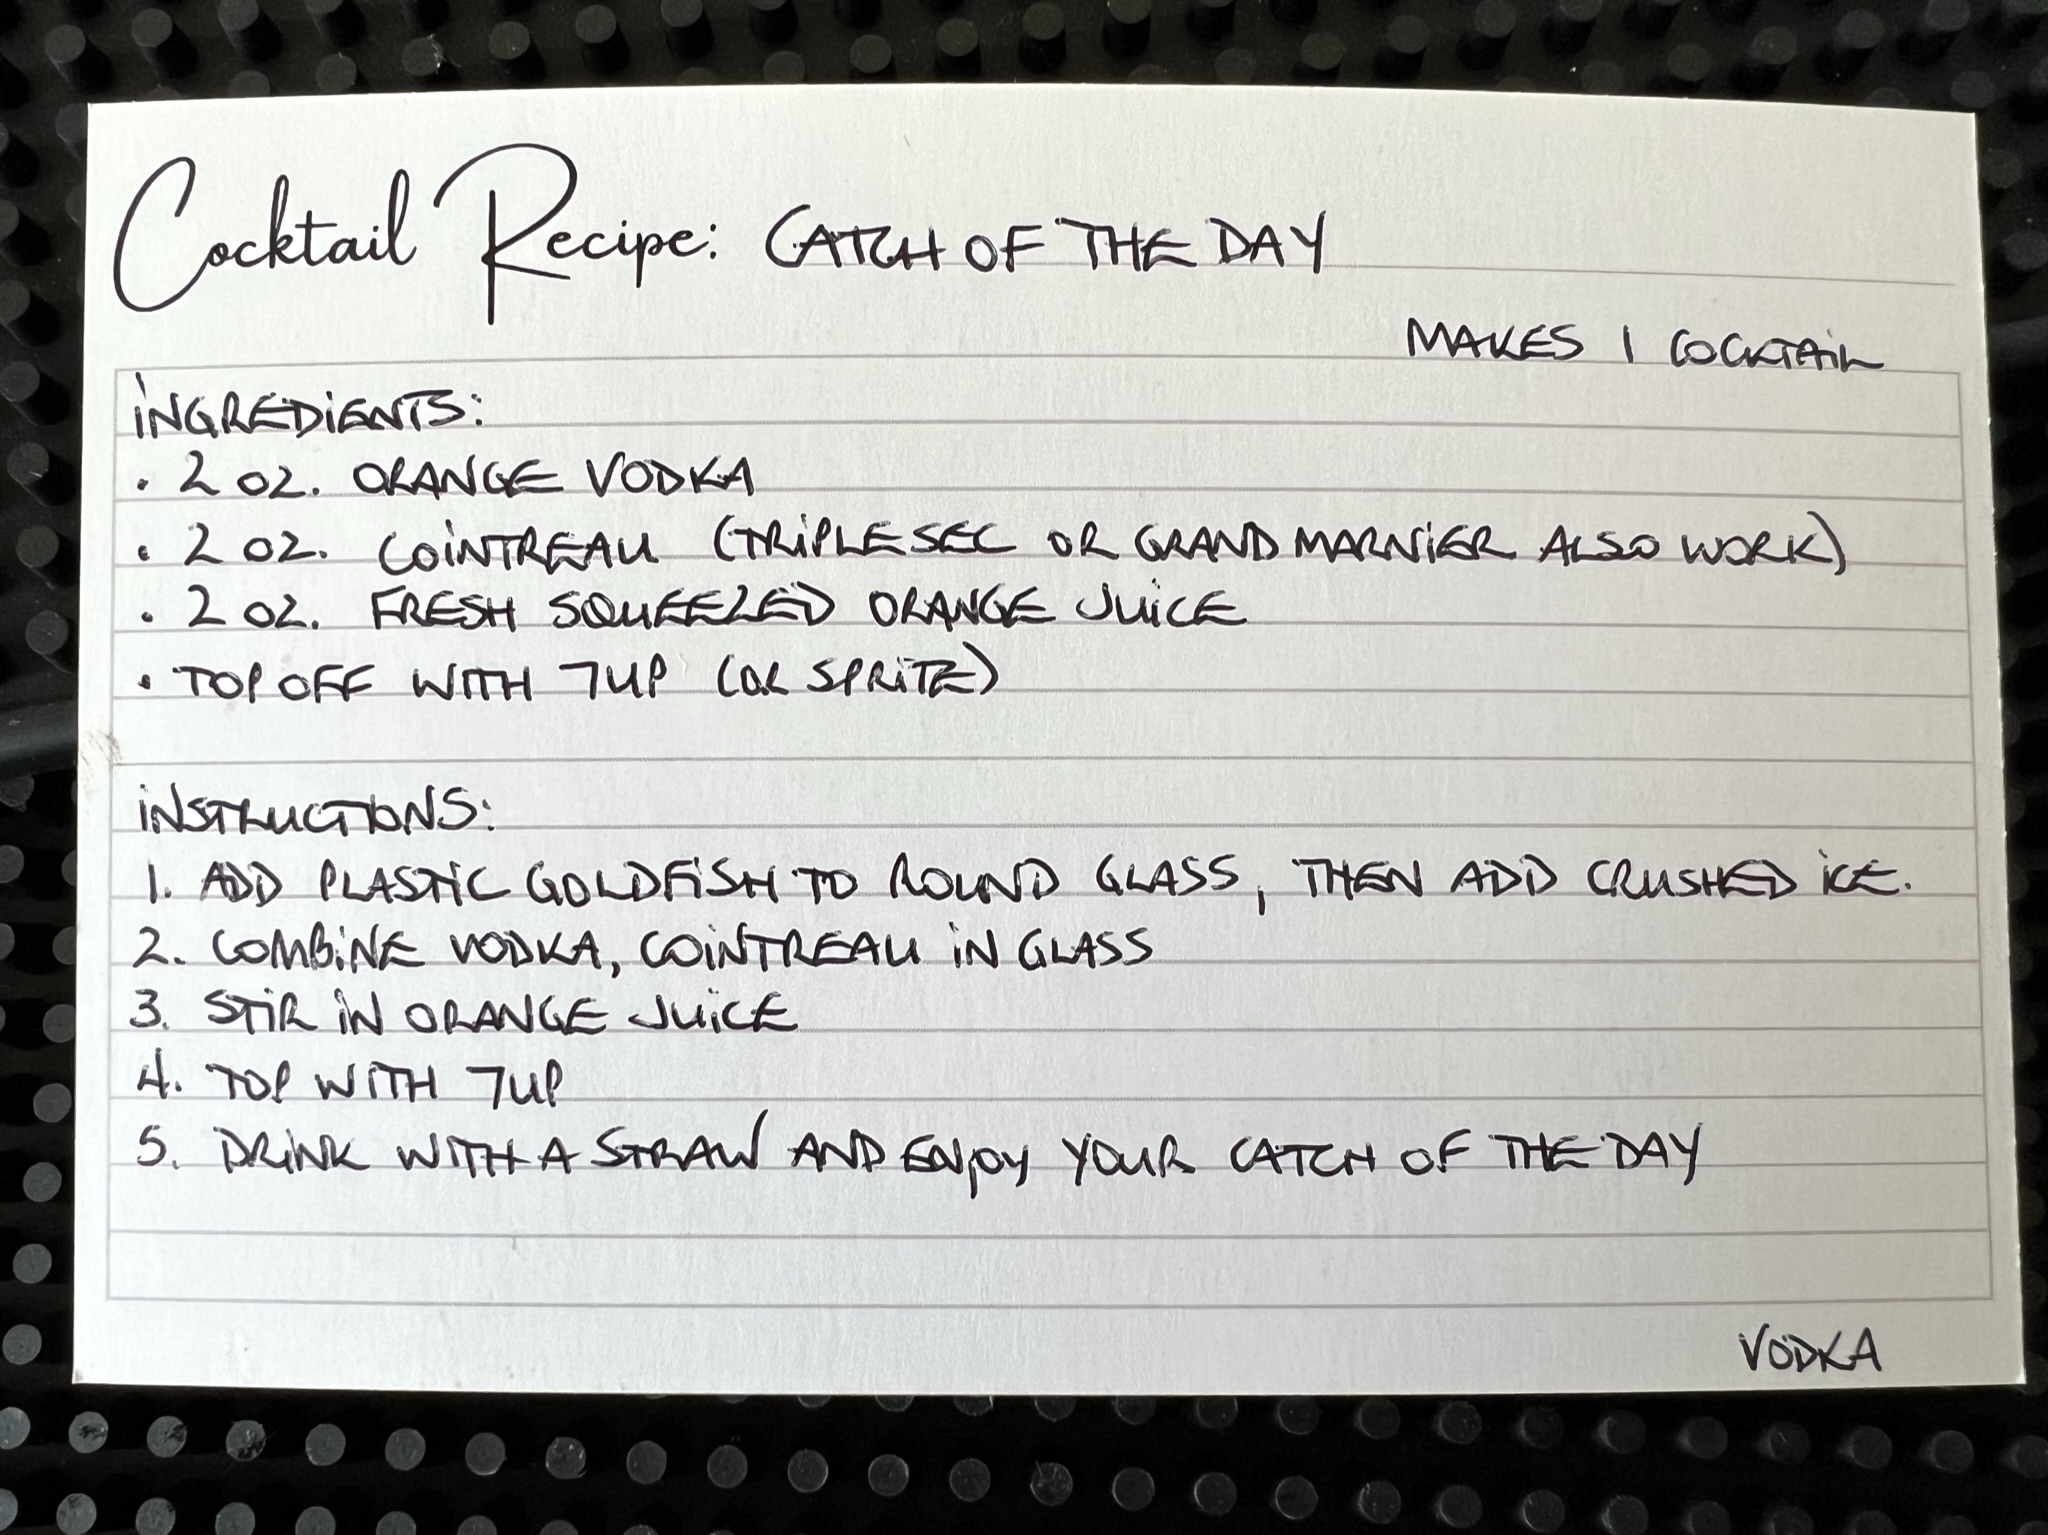 Cocktail Recipe: CATCH OF THE DAY
MAKES 1 COCKTAIL
INGREDIENTS:
• 2 OZ. ORANGE VODKA
• 2 OZ. COINTREAU (TRIPLE SEC OR GRAND MARNIER ALSO WORK)
• 2 OZ. FRESH SQUEEZED ORANGE JUICE
• TOP OFF WITH 7UP (OR SPRITE)
INSTRUCTIONS:
1. ADD PLASTIC GOLDFISH TO ROUND GLASS, THEN ADD CRUSHED ICE.
2. COMBINE VODKA, COINTREAU IN GLASS
3. STIR IN ORANGE JUICE
4. TOP WITH 7UP
5. DRINK WITH A STRAW AND ENJOY YOUR CATCH OF THE DAY
VODKA